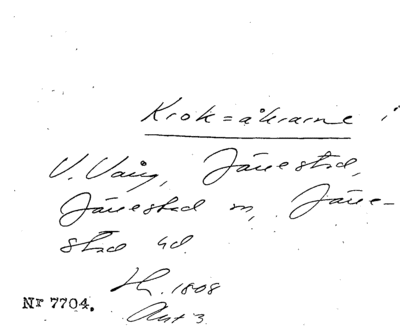 Krok=åkrarne i
V. Vång, Jänestad,
Jänestad m, Jäne-
stad sd.
1808
Akt 3
Nr 7704.